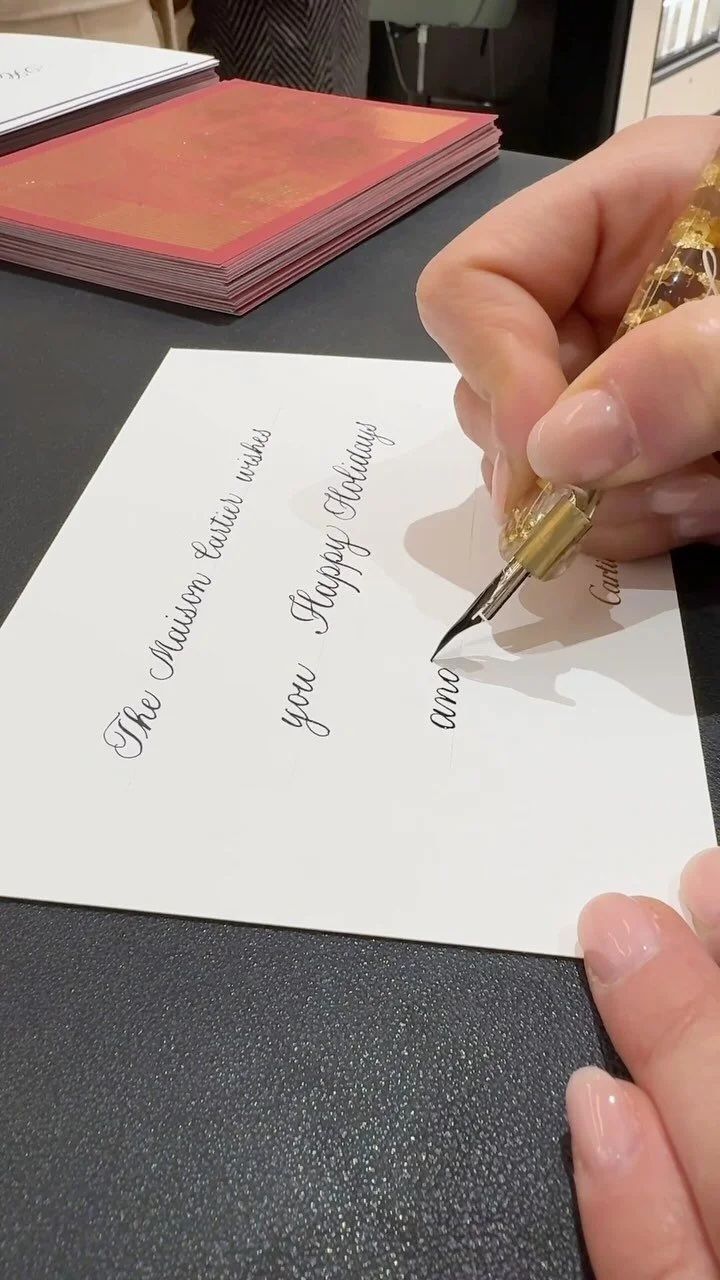 The Maison Cartier wishes
you Happy Holidays
and